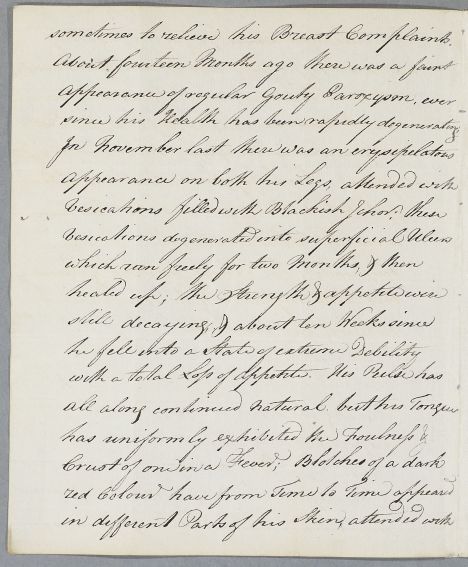 sometimes to relieve his Breast Complaint.
About fourteen Months ago there was a faint
appearance of regular Gouty Paroxysm, ever
since his Health has been rapidly degenerating
In November last there was an erysipelatous
appearance on both his Legs, attended with
Vesications filled with Blackish Ichor: these
Vesications degenerated into superficial Ulcers
which ran freely for two Months, & then
healed up; the strength & appetite were
still decaying, & about ten Weeks since
he fell into a State of extreme Debility
with a total Loss of appetite. His Pulse has
all along continued natural but his Tongue
has uniformly exhibited the Foulness &
Crust of one in a Fever; Blotches of a dark
red Colour have from Time to Time appeard
in different Parts of his Skin, attended with